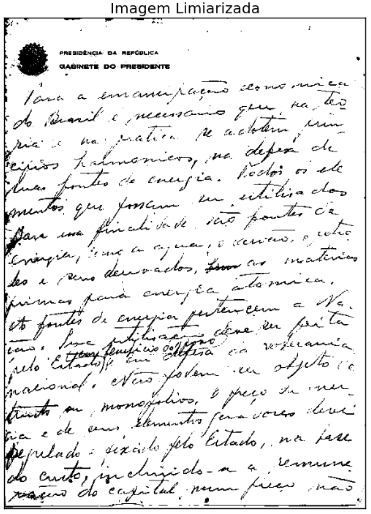 Imagem Limiarizada
PRESIDÊNCIA DA REPÚBLICA
GABINETE DO PRESIDENTE
Para a emancipação economica
do Brasil é necessario que na teo
ria e na pratica se adotem prin
cipios harmonicos, na defesa de
suas fontes de energia. Todos os ele
mentos que possam ser utilisados
para essa finalidade, são fontes de
energia, como a agua, o carvão, o petro
leo e seus derivados, as materias
primas para energia atomica.
As fontes de energia pertencem a Na
ção. Sua utilisação deve ser feita
pelo Estado, em defesa da soberania
nacional. Não podem ser objeto de
ou monopolios. O preço da
e de seus elementos geradores deve
regulado e fixado pelo Estado, na base
do custo, incluindo-se a remune
ração do capital num preço não